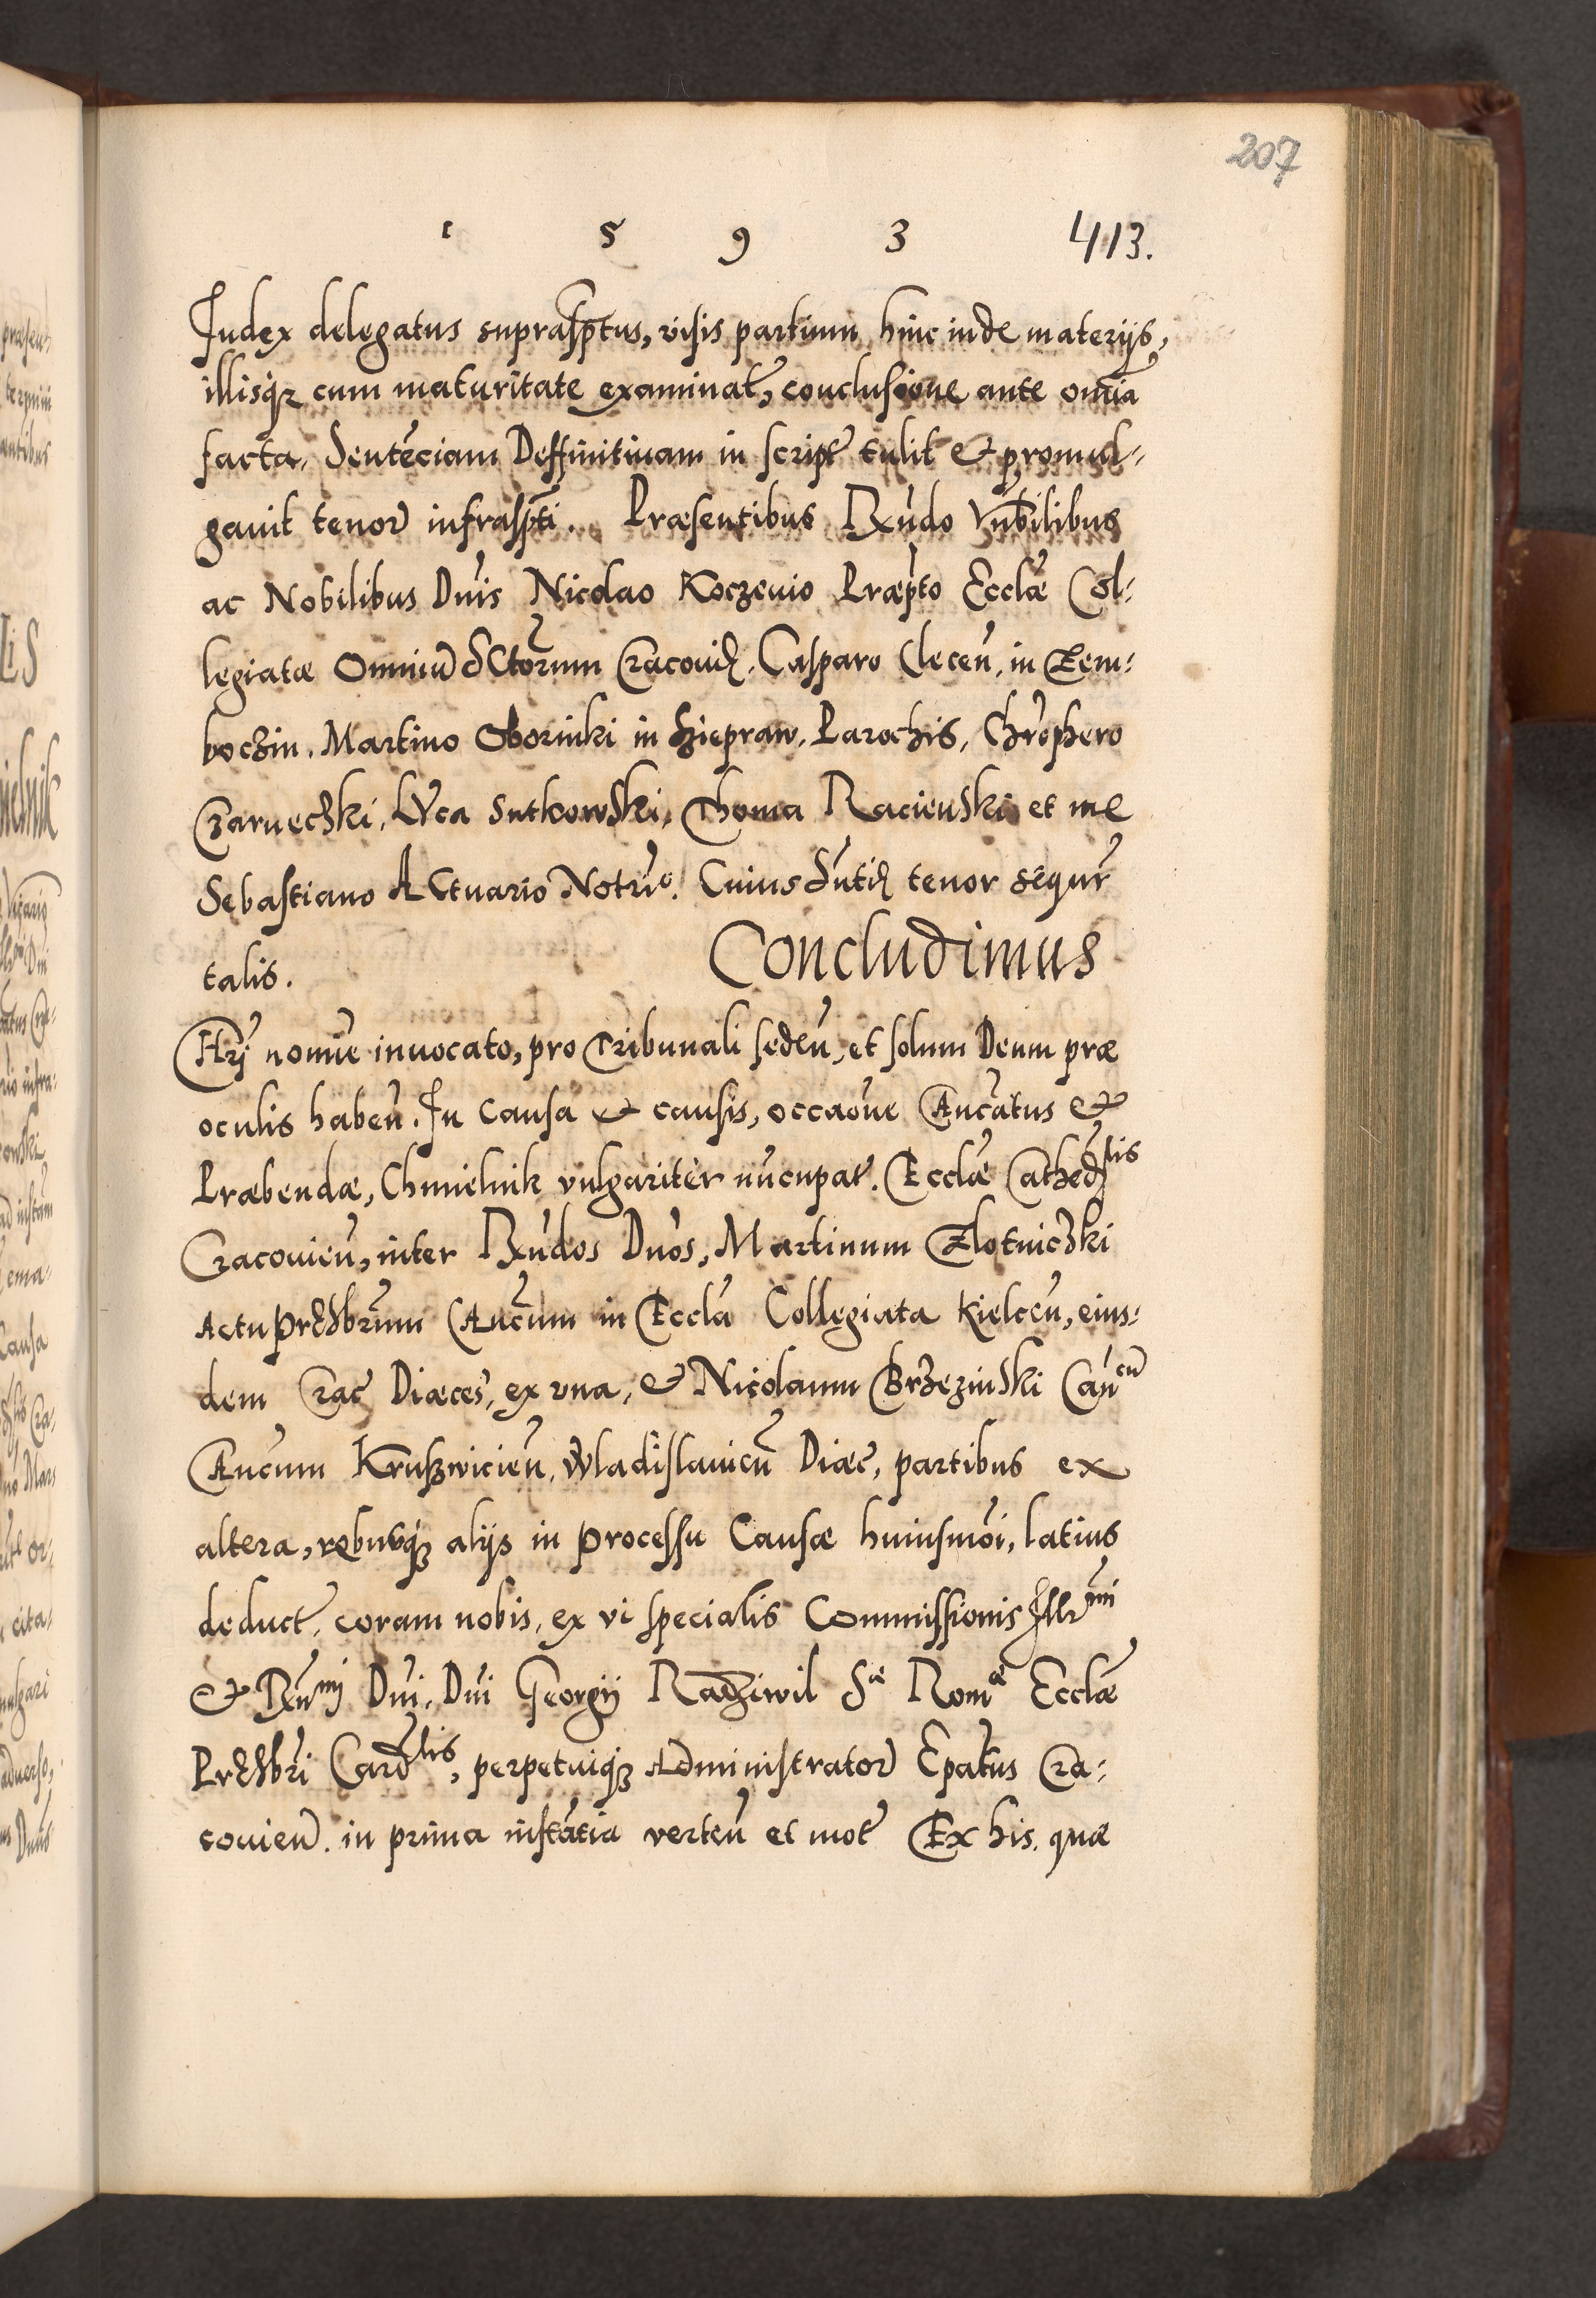 207
1 5 9 3 413.
Judex delegatus suprasptus, visis partium hinc inde materijs,
illisq3 cum maturitate examinat, conclusione ante omia
facta, Sentēciam Deffinitiuam in script tulit & promul-
gauit tenor infraspti. Præsentibus Rndo Vnbilibus
ac Nobilibus Dnis Nicolao Koczenio Præpto Ecclæ Col-
legiatæ Omniū SCtorum Cracouię. Casparo Clecen, in Zem-
bochin. Martino Oborinki in Hiepraw, Parochis, Chrophero
Czarneczki, LVca Sutkowski, Thoma Racienski et me
Sebastiano ACtuario Notrio. Cuius Sntię tenor sequr
talis. Concludimus
Chri nomīe inuocato, pro Tribunali seden, et solum Deum præ
oculis haben. In Causa & causis, occaone Cancatus &
Præbendæ, Chmielnik vulgariter nūcupat. Ecclæ Cathedlis
Cracouien, inter Rndos Dnos, Martinum Zlotniczki
Actu prEsbrum Cancum in Eccla Collegiata Kielcen, eius-
dem Crac Diæces, ex vna, & Nicolaum Brzezinski Cancū
Cancum Kruszwicien, Wladislauicn Diæc, partibus ex
altera, rebusq3 alijs in processu Causæ huiusmoi, latius
deduct, coram nobis, ex vi specialis Commissionis Illrmi
& Rnmi Dni, Dni Georgij Radziwil Sæ Romæ Ecclæ
PrEsbri Cardlis, perpetuiq3 Administrator Epatus Cra-
couien. in prima instātia verten et mot Ex his, quæ